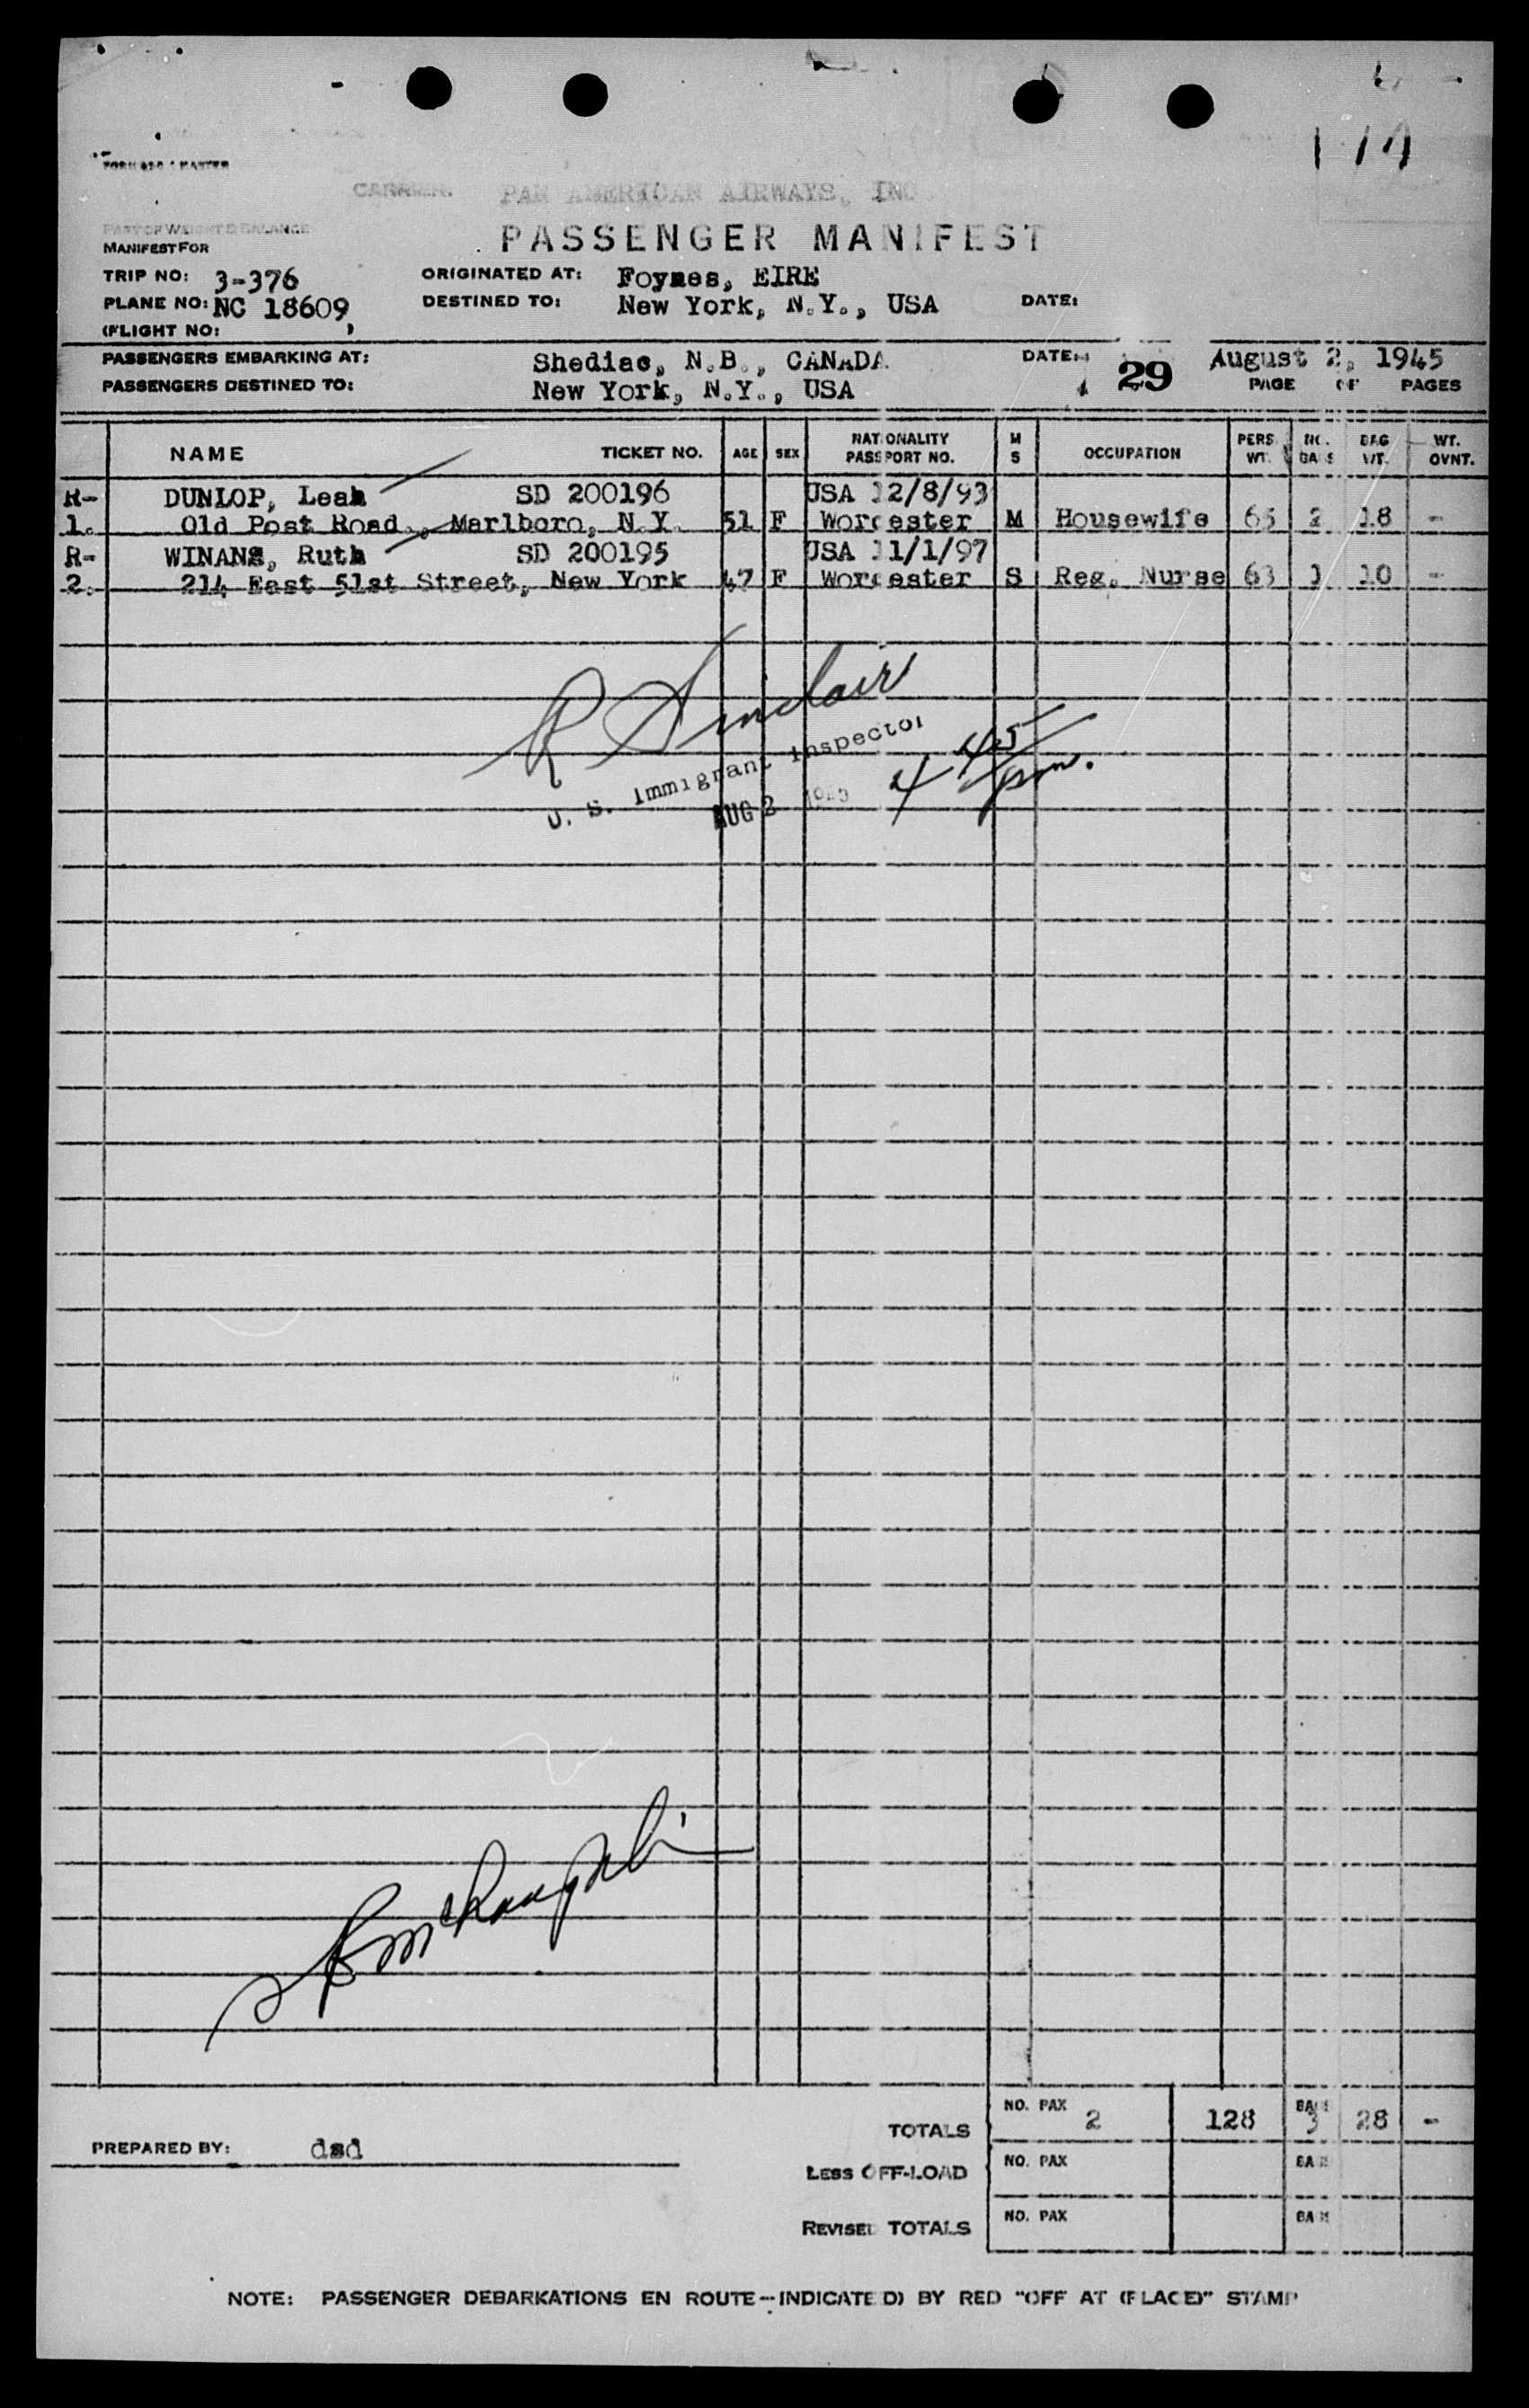 CARRIER: PAN AMERICAN AIRWAYS, INC.
PART OF WEIGHT & BALANCE
MANIFEST FOR
PASSENGER MANIFEST
TRIP NO: 3-376 ORIGINATED AT: Foynes, EIRE
PLANE NO: NC 18609 DESTINED TO: New York, N.Y., USA DATE:
(FLIGHT NO: )
PASSENGERS EMBARKING AT: Shediac, N.B., CANADA DATE: August 2, 1945
PASSENGERS DESTINED TO: New York, N.Y., USA 29 PAGE OF PAGES
NAME TICKET NO. AGE SEX NATIONALITY PASSPORT NO. M S OCCUPATION PERS. WT. NO. BAGS BAG WT. WT. OVNT.
R- DUNLOP, Leah SD 200196 USA 12/8/93
1. Old Post Road., Marlboro, N.Y. 51 F Worcester M Housewife 65 2 18 -
R- WINANS, Ruth SD 200195 USA 11/1/97
2. 214 East 51st Street, New York 47 F Worcester S Reg. Nurse 63 1 10 -
R Sinclair
U. S. Immigrant Inspector
AUG 2 1945
4 45 pm.
TOTALS NO. PAX 2 128 BAGS 3 28 -
PREPARED BY: dsd
LESS OFF-LOAD NO. PAX BAGS
REVISED TOTALS NO. PAX BAGS
NOTE: PASSENGER DEBARKATIONS EN ROUTE--INDICATE(D) BY RED "OFF AT (PLACE)" STAMP